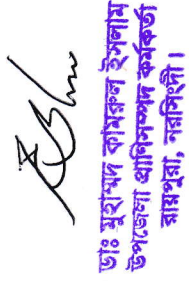 ডাঃ মুহাম্মদ কামরুল ইসলাম
উপজেলা প্রাণিসম্পদ কর্মকর্তা
রায়পুরা, নরসিংদী।